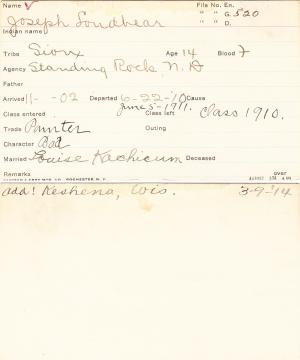 Name ✓ File No. En.
Joseph Loudbear " " G. 520
Indian name " " D.
Tribe Sioux Age 14 Blood F
Agency Standing Rock N. D
Father
Arrived 11- -02 Departed 6-22-10 Cause
June 5-1911.
Class entered Class left Class 1910.
Trade Painter Outing
Character Bad
Married Louise Kachicum Deceased
Remarks over
ROCHESTER, N. Y.
add: Keshena, Wis. 3-9-14